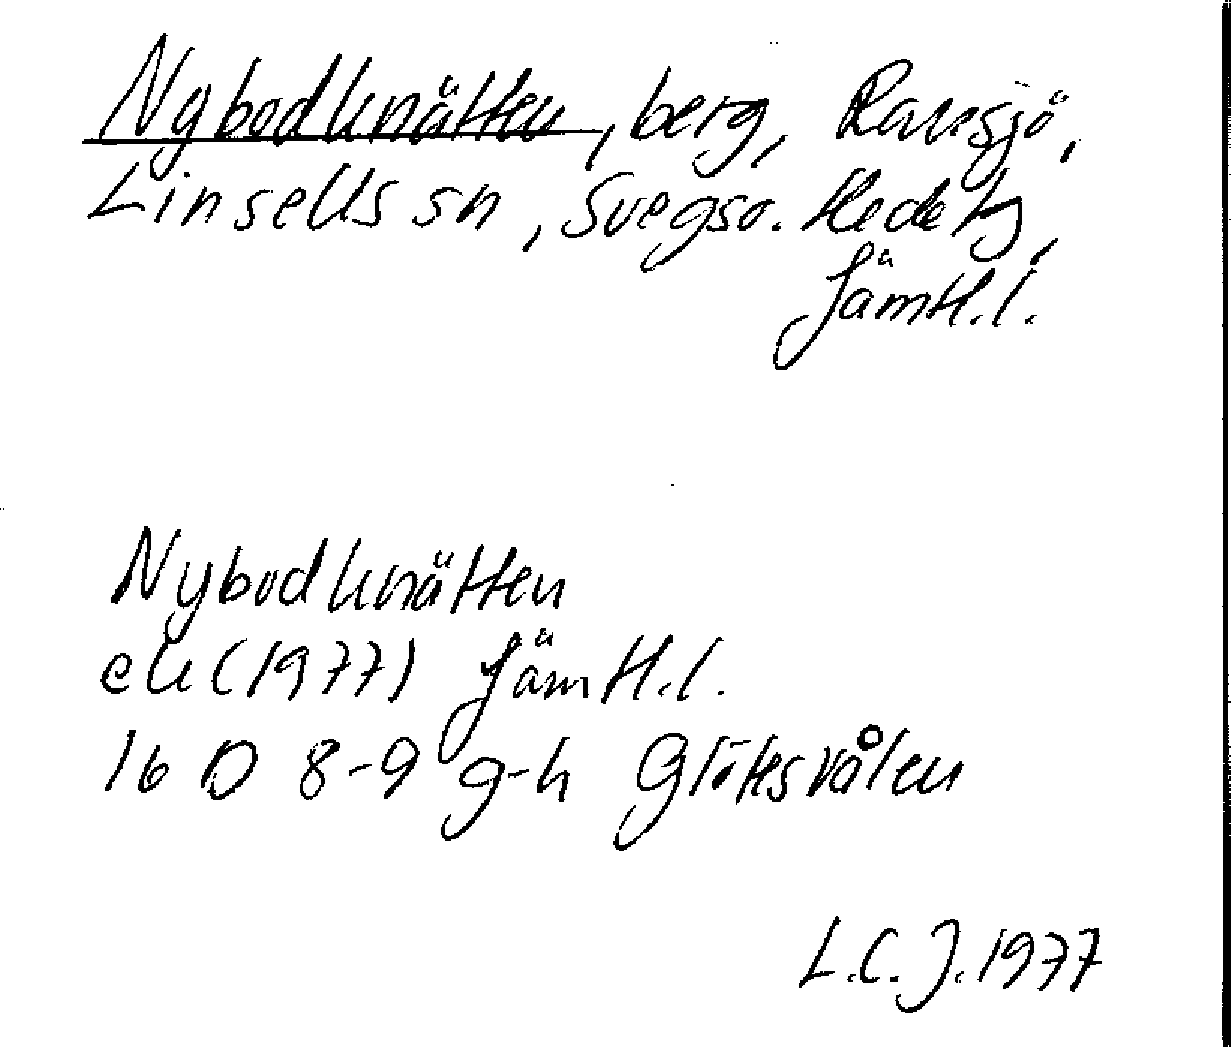 Nybodknätten, berg, Ransjö,
Linsells sn, Svegso. Hede tg,
Jämtl.l.
Nybodknätten
ek (1977) Jämtl.l.
16 D 8-9 g-h Glötesvålen
L.C.J. 1977